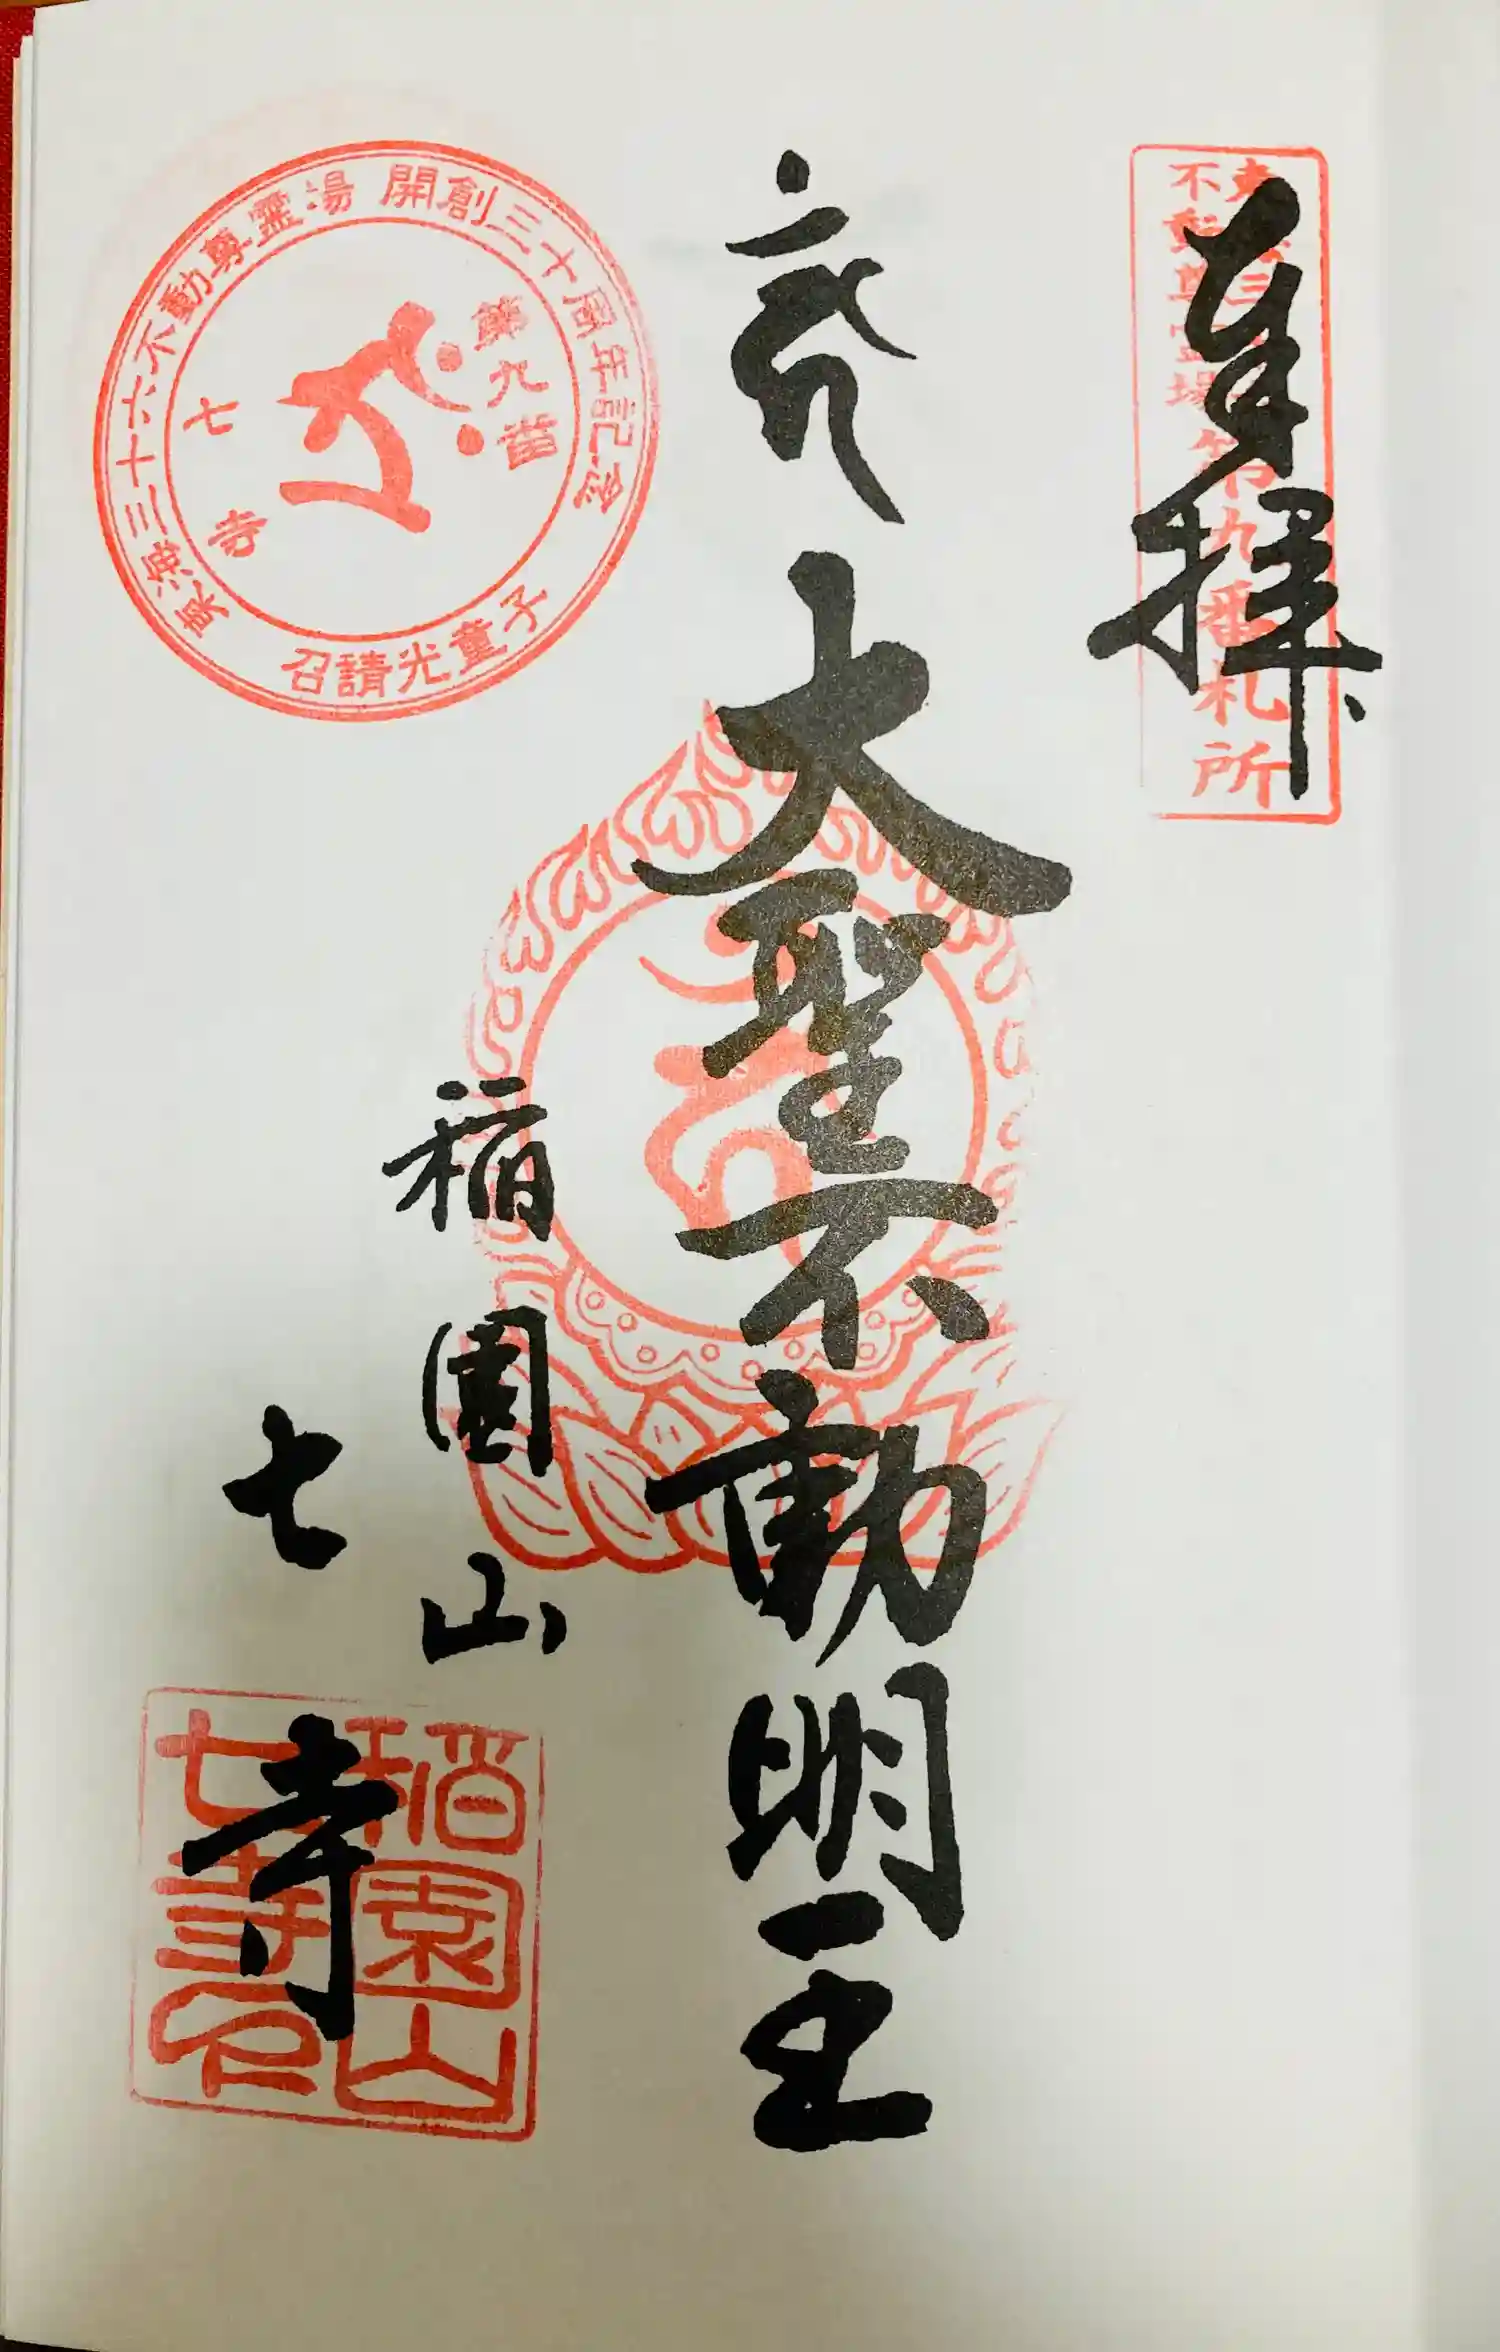 奉拝
東海三十六
不動尊霊場
第九番札所
大聖不動明王
稲園山
七寺
東海三十六不動尊霊場 開創三十周年記念
第九番
七寺
召請光童子
稲園山
七寺印